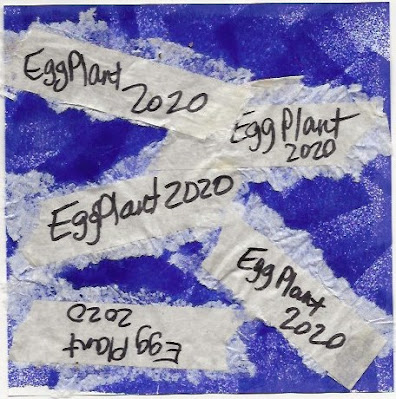 EggPlant
2020
Egg Plant
2020
EggPlant 2020
Egg Plant
2020
Egg Plant
2020